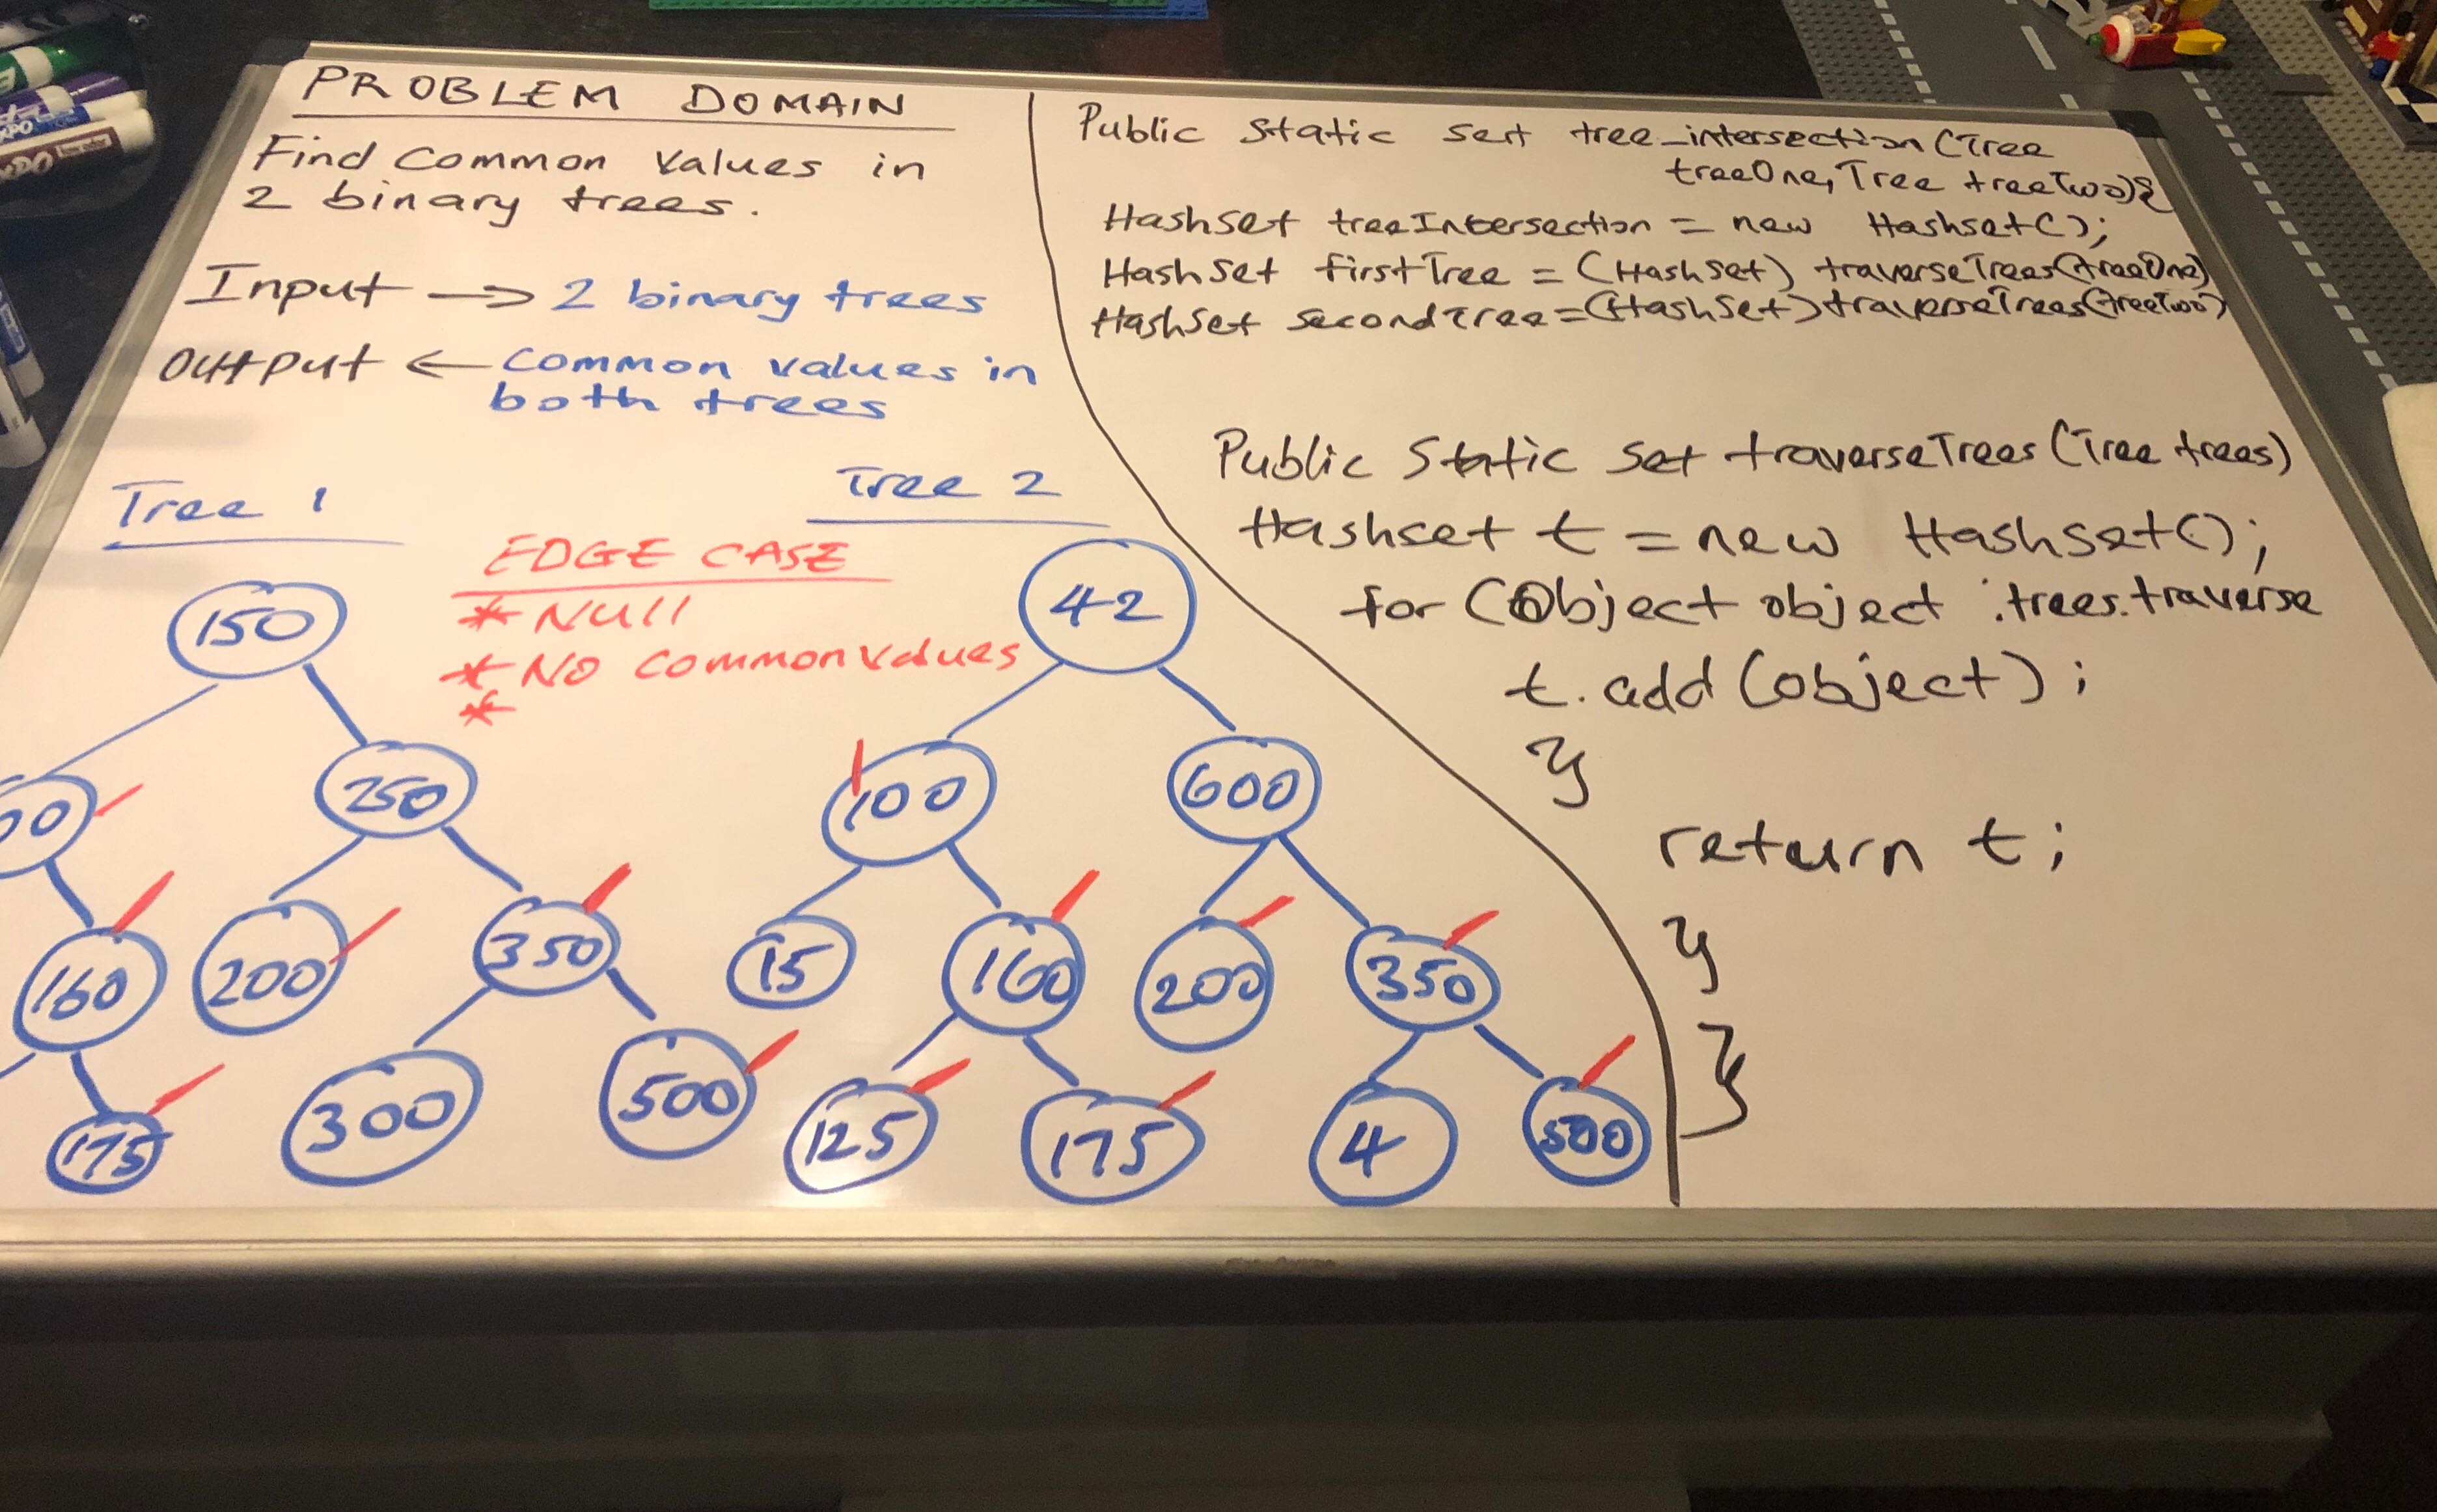 PROBLEM DOMAIN
Find Common Values in
2 binary trees.
Input → 2 binary trees
OUtPut ← Common values in
both trees
Tree 1
Tree 2
EDGE CASE
* NUll
* NO Common values
*
150
250
160
200
350
175
300
500
42
100
600
15
160
200
350
125
175
4
500
Public Static Set tree_intersection (Tree
treeOne, Tree treeTwo){
HashSet treeIntersection = new Hashset();
HashSet firstTree = (HashSet) traverseTrees(treeOne)
HashSet secondTree = (HashSet) traverseTrees(treeTwo)
Public Static Set traverseTrees (Tree trees)
Hashset t = new HashSet();
for (Object object : trees.traverse
t.add (object);
}
return t;
}
}
EXPO